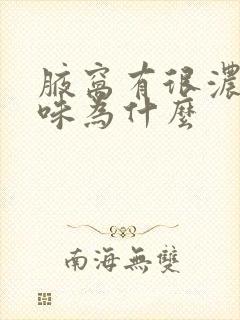 腋窩有很濃
味為什麼
南海無雙